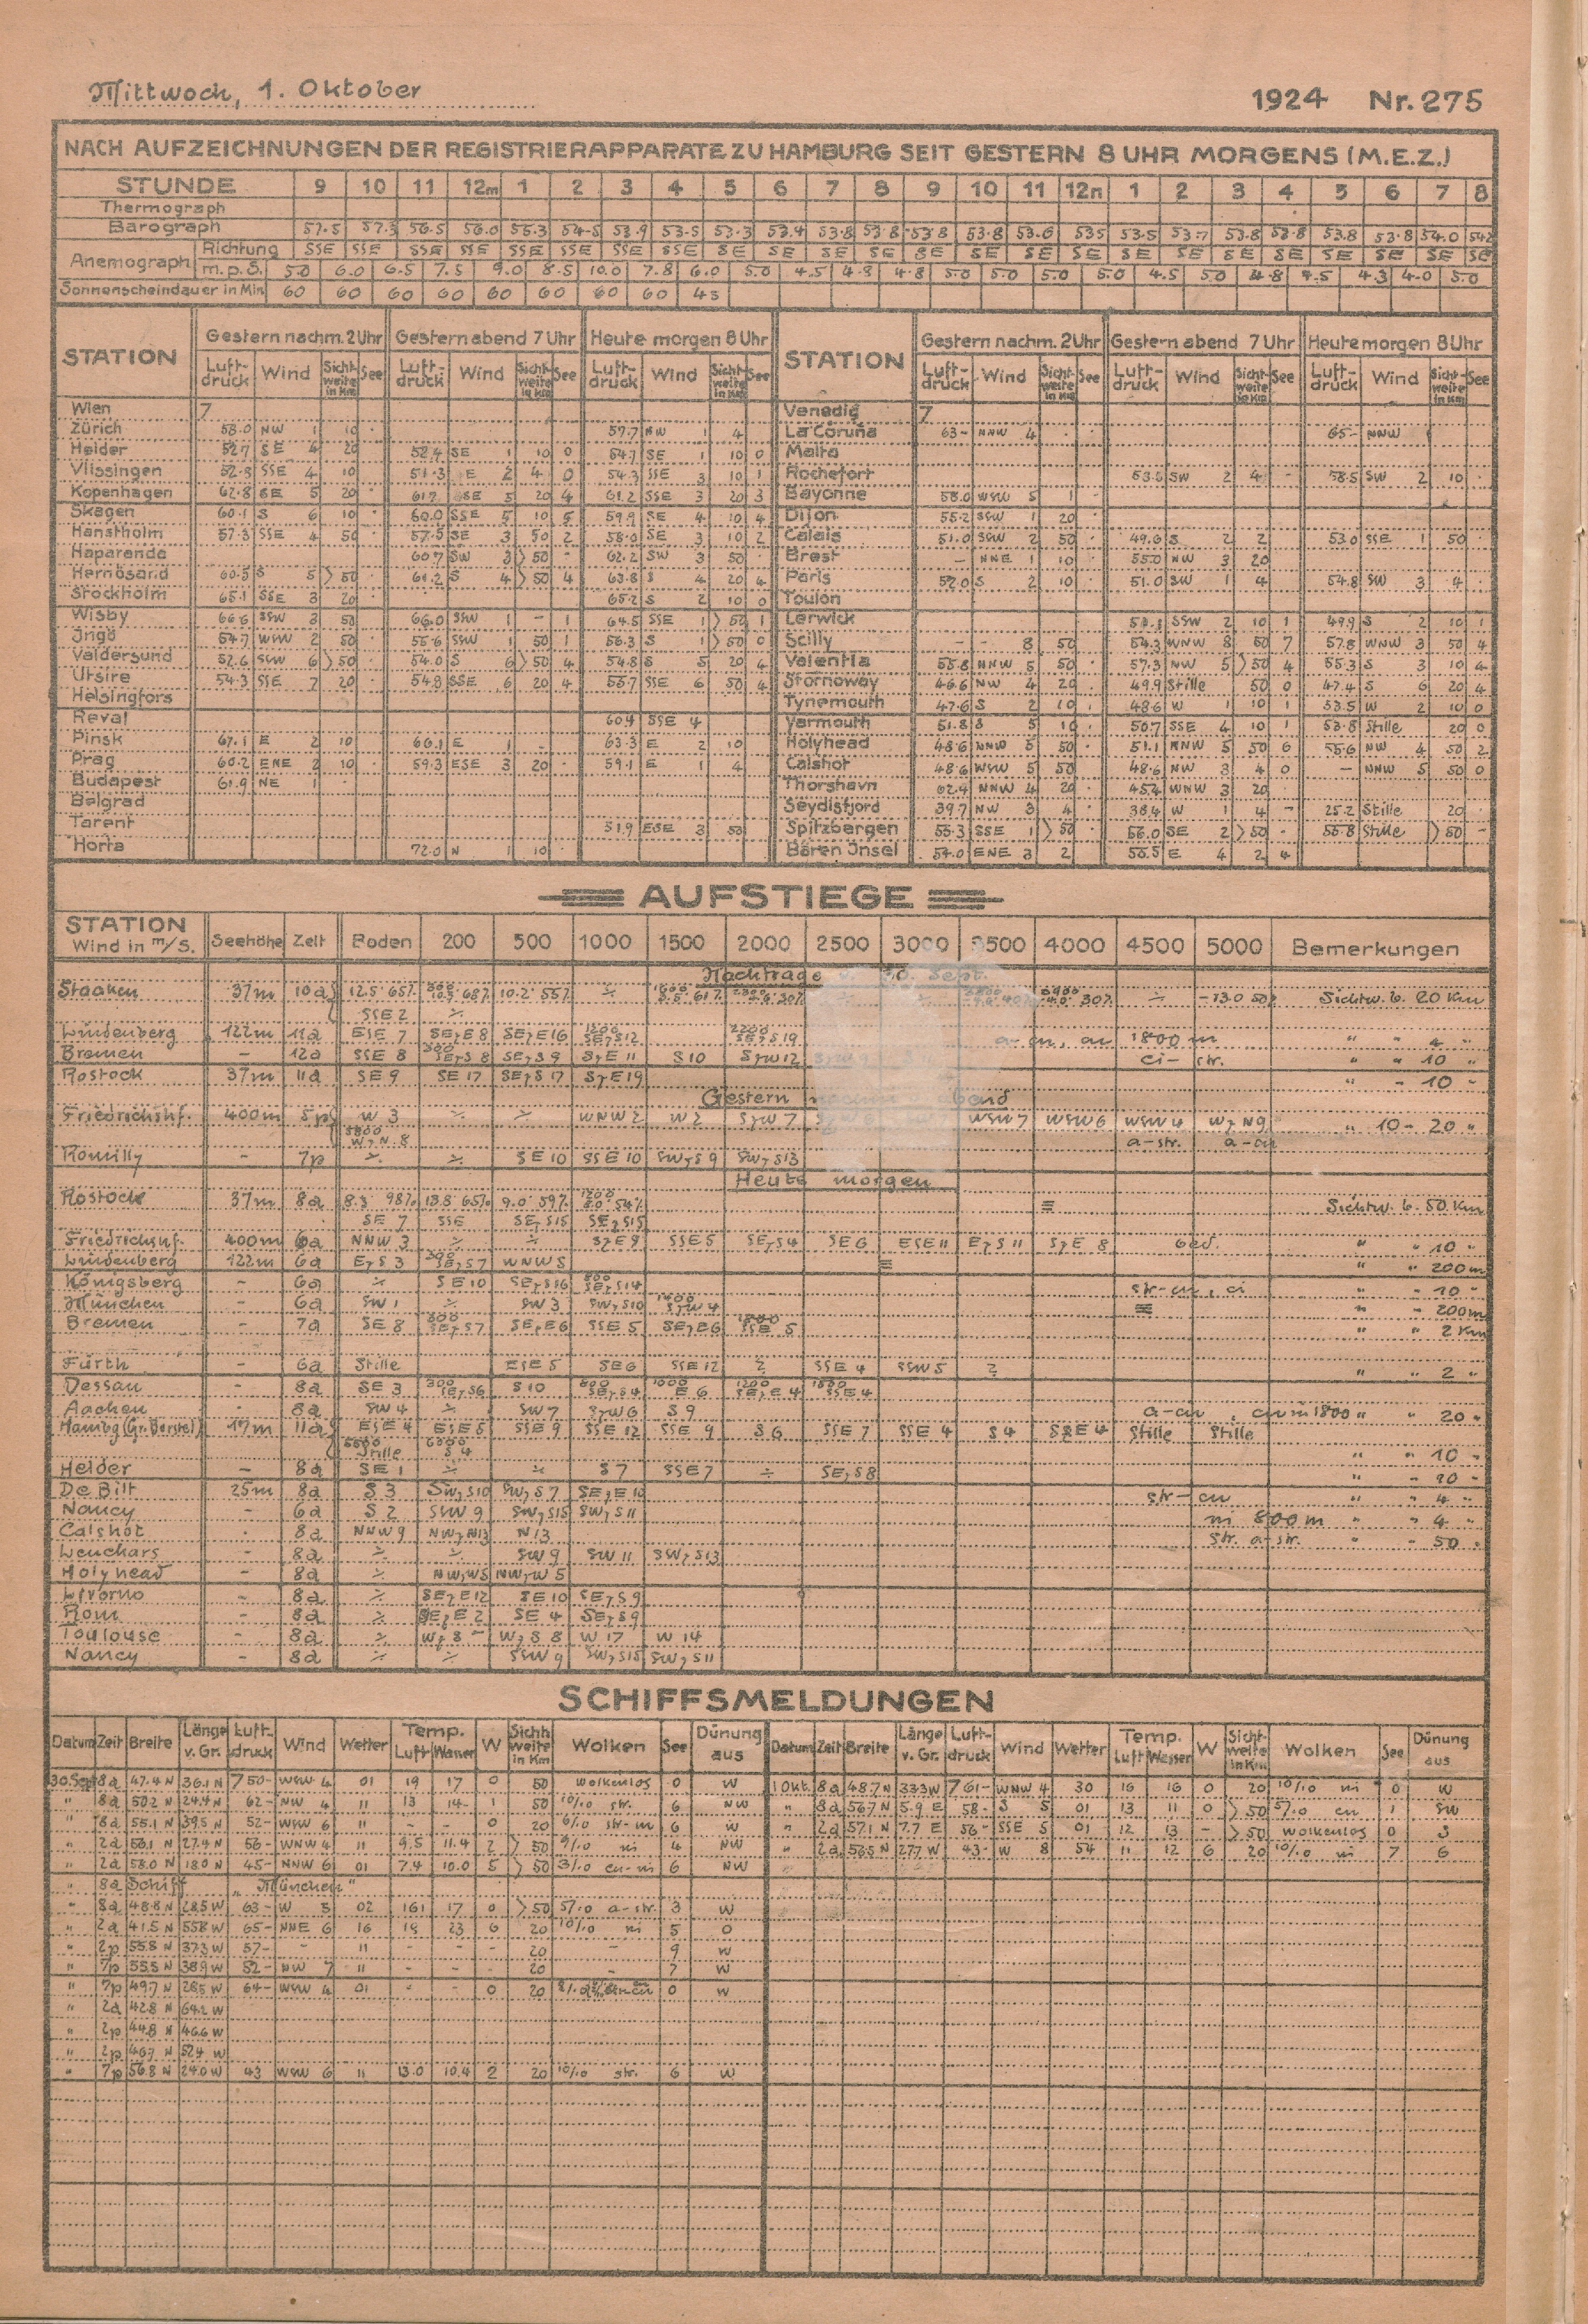 Mittwoch, 1. Oktober 1924 Nr. 275
NACH AUFZEICHNUNGEN DER REGISTRIERAPPARATE ZU HAMBURG SEIT GESTERN 8 UHR MORGENS (M.E.Z.)
STUNDE 9 10 11 12m 1 2 3 4 5 6 7 8 9 10 11 12n 1 2 3 4 5 6 7 8
Thermograph
Barograph 57.5 57.3 56.5 56.0 55.3 54.5 53.9 53.5 53.3 53.4 53.8 53.8 53.8 53.8 53.6 535 53.5 53.7 53.8 53.8 53.8 53.8 54.0
Anemograph Richtung SSE SSE SSE SSE SSE SSE SSE SSE SE SE SE SE SE SE SE SE SE SE SE SE SE SE SE SE
m.p.S. 5.0 6.0 6.5 7.5 9.0 8.5 10.0 7.8 6.0 5.0 4.5 4.8 4.8 5.0 5.0 5.0 5.0 4.5 5.0 4.8 4.5 4.3 4.0 5.0
Sonnenscheindauer in Min 60 60 60 60 60 60 60 60 45
STATION Gestern nachm. 2 Uhr Gestern abend 7 Uhr Heute morgen 8 Uhr STATION Gestern nachm. 2 Uhr Gestern abend 7 Uhr Heute morgen 8 Uhr
Luft-druck Wind Sicht-weite in Km See Luft-druck Wind Sicht-weite in Km See Luft-druck Wind Sicht-weite in Km See Luft-druck Wind Sicht-weite in Km See Luft-druck Wind Sicht-weite in Km See Luft-druck Wind Sicht-weite in Km See
Wien 7 Venedig 7
Zürich 53.0 NW 1 10 57.7 NW 1 4 La Coruña 63- NNW 4 65- NNW 1
Helder 52.7 SE 4 20 52.4 SE 1 10 0 54.7 SE 1 10 0 Malta
Vlissingen 52.3 SSE 4 10 51.3 E 2 4 0 54.3 SSE 3 10 1 Rochefort 53.5 SW 2 4 - 58.5 SW 2 10
Kopenhagen 62.8 SE 5 20 61.7 SE 5 20 4 61.2 SSE 3 20 3 Bayonne 58.0 WSW 5 1
Skagen 60.1 S 6 10 60.0 SSE 5 10 5 59.9 SE 4 10 4 Dijon 55.2 SSW 1 20
Hanstholm 57.3 SSE 4 50 57.5 SE 3 50 2 58.0 SE 3 10 2 Calais 51.0 SSW 2 50 49.6 S 2 2 53.0 SSE 1 50
Haparanda 60.7 SW 3 >50 - 62.2 SW 3 50 Brest - NNE 1 10 55.0 NW 3 20
Hernösand 60.5 S 5 >50 61.2 S 4 >50 4 63.8 S 4 20 4 Paris 52.0 S 2 10 51.0 SW 1 4 54.8 SW 3 4
Stockholm 65.1 SSE 3 20 65.2 S 2 10 0 Toulon
Wisby 66.6 SSW 3 50 66.0 SSW 1 - 1 64.5 SSE 1 >50 1 Lerwick 51.3 SSW 2 10 1 49.9 S 2 10 1
Ingö 54.7 WSW 2 50 55.6 SSW 1 50 1 56.3 S 1 >50 0 Scilly - - 8 50 54.3 WNW 8 50 7 57.8 WNW 3 50 4
Valdersund 52.6 SSW 6 >50 54.0 S 6 >50 4 54.8 S 5 20 4 Valentia 55.8 NNW 5 50 57.3 NW 5 >50 4 55.3 S 3 10 4
Utsire 54.3 SSE 7 20 54.8 SSE 6 20 4 55.7 SSE 6 50 4 Stornoway 46.6 NW 4 20 49.9 Stille 50 0 47.4 S 6 20 4
Helsingfors Tynemouth 47.6 S 2 10 48.6 W 1 10 1 53.5 W 2 10 0
Reval 60.4 SSE 4 Yarmouth 51.8 S 5 10 50.7 SSE 4 10 1 53.8 Stille 20 0
Pinsk 67.1 E 2 10 66.1 E 1 - 63.3 E 2 10 Holyhead 48.6 NNW 5 50 51.1 NNW 5 50 6 55.6 NW 4 50 2
Prag 60.2 ENE 2 10 59.3 ESE 3 20 59.1 E 1 4 Calshot 48.6 WSW 5 50 48.6 NW 3 4 0 - NNW 5 50 0
Budapest 61.9 NE 1 Thorshavn 62.4 NNW 4 20 45.4 WNW 3 20
Belgrad Seydisfjord 39.7 NW 3 4 38.4 W 1 4 - 25.2 Stille 20
Tarent 51.9 ESE 3 50 Spitzbergen 55.3 SSE 1 >50 56.0 SE 2 >50 - 55.8 Stille >50 -
Horta 72.0 N 1 10 Bären Insel 57.0 ENE 3 2 55.5 E 4 2 4
AUFSTIEGE
STATION Wind in m/S. Seehöhe Zeit Boden 200 500 1000 1500 2000 2500 3000 3500 4000 4500 5000 Bemerkungen
Nachträge 30. Sept.
Staaken 37m 10a 12.5° 65% 68% 10.2° 55% ÷ 61% 30% 30% ÷ -13.0 Sichtw. b. 20 Km
SSE 2 ÷
Lindenberg 122m 11a ESE 7 SEzE 8 SEzE 16 1200 SEzS 12 2200 SEzS 19 a-cu, cu 1800 m " " 4 "
Bremen - 12a SSE 8 SEzS 8 SEzS 9 SzE 11 S 10 SzW 12 ci-str. " " 10 "
Rostock 37m 11a SE 9 SE 17 SEzS 17 SzE 19 " " 10 "
Gestern abend
Friedrichshf. 400m 5p W 3 ÷ ÷ WNW 2 W 2 SzW 7 WSW 7 WSW 6 WSW 4 WzN 9 " 10 - 20 "
WzN 8 a-str. a-cu
Romilly - 7p ÷ ÷ SE 10 SSE 10 SWzS 9 SWzS 13
Heute morgen
Rostock 37m 8a 8.3° 98% 13.8° 65% 9.0° 59% 54% ≡ Sichtw. b. 50 Km
SE 7 SSE SEzS 15 SEzS 15
Friedrichshf. 400m 6a NNW 3 ÷ ÷ SzE 9 SSE 5 SEzS 4 SE 6 ESE 11 EzS 11 SzE 8 bed. " " 10 "
Lindenberg 122m 6a EzS 3 SEzS 7 WNW 5 ≡ " " 200m
Königsberg - 6a ÷ SE 10 SEzS 16 800 SEzS 14 str-cu, ci " " 10 "
München - 6a SW 1 ÷ SW 3 SWzS 10 1400 SzW 4 ≡ " " 200m
Bremen - 7a SE 8 SEzS 7 SEzE 6 SSE 5 SEzE 6 SSE 5 " " 2 Km
Fürth - 6a Stille ESE 5 SE 6 SSE 12 ? SSE 4 SSW 5 ? " " 2 "
Dessau - 8a SE 3 300 SEzS 6 S 10 800 SEzS 4 1000 E 6 1200 SEzE 4 SSE 4
Aachen - 8a SW 4 ÷ SW 7 SzW 6 S 9 a-cu, cu in 1800 " " 20 "
Hambg (Gr. Borstel) 17m 11a ESE 4 ESE 5 SSE 9 SSE 12 SSE 9 S 6 SSE 7 SSE 4 S 4 SSE 4 Stille Stille
5500 Stille 6000 S 4 " " 10 "
Helder - 8a SE 1 ÷ ÷ S 7 SSE 7 ÷ SEzS 8 " " 20 "
De Bilt 25m 8a S 3 SWzS 10 SWzS 7 SEzE 10 str-cu " " 4 "
Nancy - 6a S 2 SSW 9 SWzS 15 SWzS 11 ni 800m " " 4 "
Calshot - 8a NNW 9 NWzN 13 N 13 str. a-str. " " 50 "
Leuchars - 8a ÷ ÷ SW 9 SW 11 SWzS 13
Holyhead - 8a ÷ NWzW 5 NWzW 5
Livorno - 8a ÷ SEzE 12 SE 10 SEzS 9
Rom - 8a ÷ SEzE 2 SE 4 SEzS 9
Toulouse - 8a ÷ WzS WzS 8 W 17 W 14
Nancy - 8a ÷ ÷ SSW 9 SWzS 15 SWzS 11
SCHIFFSMELDUNGEN
Datum Zeit Breite Länge v. Gr. Luft-druck Wind Wetter Temp. Luft Wasser W Sicht-weite in Km Wolken See Dünung aus Datum Zeit Breite Länge v. Gr. Luft-druck Wind Wetter Temp. Luft Wasser W Sicht-weite in Km Wolken See Dünung aus
30. Sept 8a 47.4 N 36.1 N 750- WSW 4 01 19 17 0 50 wolkenlos 0 W 1 Okt. 8a 48.7 N 33.3 W 761- WNW 4 30 16 16 0 20 10/10 ni 0 W
" 8a 50.2 N 24.4 N 62- NW 4 11 13 14- 1 50 10/10 str. 6 NW " 8a 56.7 N 5.9 E 58- S 5 01 13 11 0 >50 5/10 cu 1 SW
" 8a 55.1 N 39.5 N 52- WSW 6 11 - - 0 20 6/10 str-cu 6 W " 2a 57.1 N 7.7 E 56- SSE 5 01 12 13 - >50 wolkenlos 0 S
" 2a 56.1 N 27.4 N 56- WNW 4 11 9.5 11.4 2 >50 9/10 ni 4 NW " 2a 56.5 N 27.7 W 43- W 8 54 11 12 6 20 10/10 ni 7 6
" 2a 58.0 N 18.0 N 45- NNW 6 01 7.4 10.0 5 >50 3/10 cu-ni 6 NW
" 8a Schiff „München"
" 8a 48.8 N 28.5 W 63- W 3 02 161 17 0 >50 5/10 a-str. 3 W
" 2a 41.5 N 55.8 W 65- NNE 6 16 19 23 6 20 10/10 ni 5 O
" 2p 55.8 N 37.3 W 57- - 11 - - - 20 - 9 W
" 7p 55.5 N 38.9 W 52- NW 7 11 - - - 20 - 7 W
" 7p 49.7 N 28.5 W 64- WSW 4 01 - - 0 20 0 W
" 2a 42.8 N 64.2 W
" 2p 44.8 N 46.6 W
" 2p 46.7 N 52.4 W
" 7p 56.8 N 24.0 W 43 WSW 6 11 13.0 10.4 2 20 10/10 str. 6 W